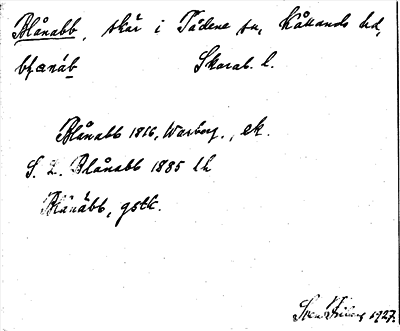 Blånabb, skär i Tådene sn, Kållands hd,
blanáb Skarab. l.
Blånabb 1816, Warberg., ek.
S. L. Blånabb 1885 lk
Blånäbb, gstk.
Sven 1927.